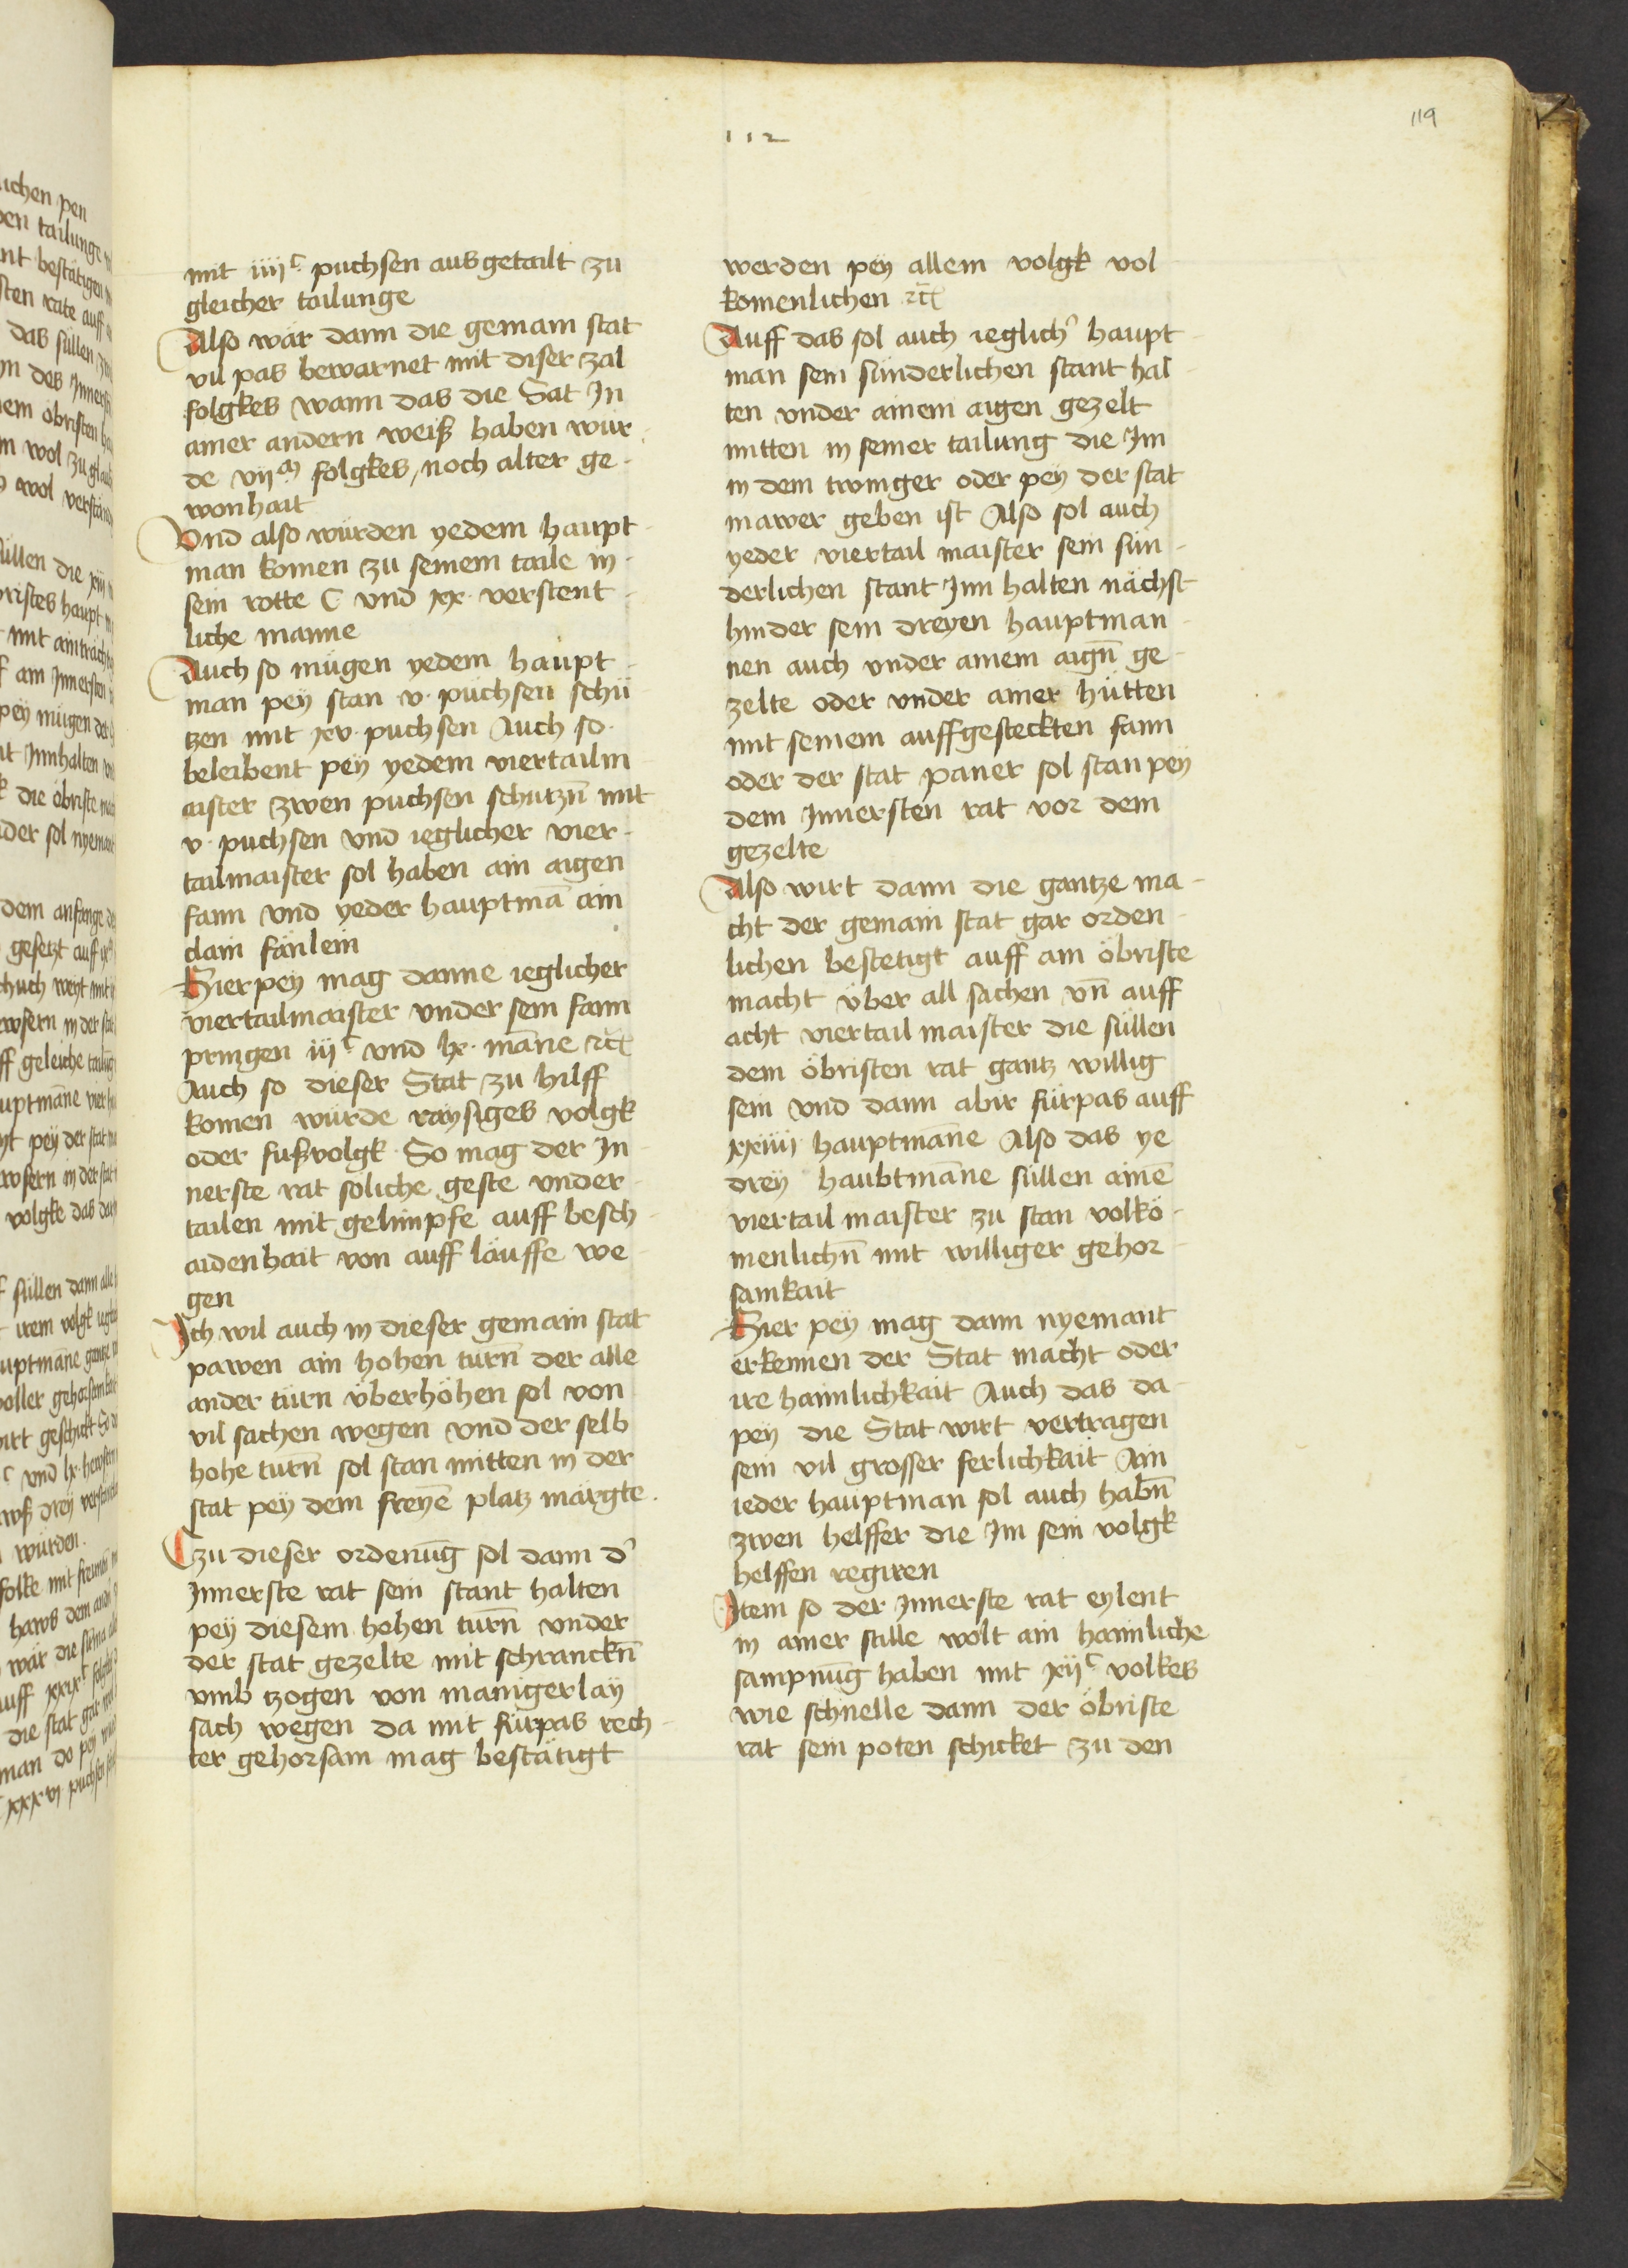 112
119
mit iiijᶜ puchsen ausgetailt zu
gleicher tailunge
Also wär dann die gemain stat
vil pas bewarnet mit diser zal
folgkes wann das die Sat In
ainer andern weiß haben wur
de vijᵐ folgkes, noch alter ge-
wonhait
Vnd also wurden yedem haupt-
man komen zu seinem taile in
sein rotte C vnd xx verstent-
liche manne
Auch so mügen yedem haupt-
man pey stan v. püchsen schü-
tzen mit xv. puchsen Auch so
beleibent pey yedem viertailm
aister zwen puchsen schutzn̄ mit
v. puchsen vnd ieglicher vier-
tailmaister sol haben ain aigen
fann vnd yeder hauptmā ain
clain fänlein
Hierpey mag danne ieglicher
viertailmaister vnder sein fann
pringen iijᶜ vnd lx. māne ꝛc̄
Auch so dieser Stat zu hilff
komen würde raysiges volgk
oder fußvolgk So mag der In-
nerste rat soliche geste vnder
tailen mit gelimpfe auff besch-
aidenhait von auff läuffe we
gen
Ich wil auch in dieser gemain stat
pawen ain hohen turn̄ der alle
ander türn überhöhen sol von
vil sachen wegen vnd der selb
hohe turn̄ sol stan mitten in der
stat pey dem freyē platz märgte.
zu dieser ordenūg sol dann dˀ
Innerste rat sein stant halten
pey diesem hohen turn̄ vnder
der stat gezelte mit schranckn̄
vmb tzogen von manigerlay
sach wegen da mit fürpas rech-
ter gehorsam mag bestätigt
werden pey allem volgk vol
komenlichen ꝛc̄
Auff das sol auch ieglichˀ haupt-
man sein sünderlichen stant hal-
ten vnder ainem aigen gezelt
mitten in seiner tailung die Im
in dem twinger oder pey der stat
mawer geben ist Also sol auch
yeder viertail maister sein sün-
derlichen stant Inn halten nächst
hinder sein dreyen hauptman-
nen auch vnder ainem aign̄ ge-
zelte oder vnder ainer hütten
mit seinem auffgesteckten fann
oder der stat paner sol stan pey
dem Innersten rat vor dem
gezelte
Also wirt dann die gantze ma-
cht der gemain stat gar orden-
lichen bestetigt auff ain öbriste
macht über all sachen vn̄ auff
acht viertail maister die süllen
dem öbristen rat gantz willig
sein vnd dann abir fürpas auff
xxiiij hauptmāne Also das ye
drey haubtmāne süllen ainē
viertail maister zu stan volkō-
menlichn̄ mit williger gehor-
samkait
Hier pey mag dann nyemant
erkennen der Stat macht oder
ire haimlichkait Auch das da
pey die Stat wirt vertragen
sein vil grosser ferlichkait Ain
ieder hauptman sol auch habn̄
zwen helffer die Im sein volgk
helffen regiren
Item so der Innerste rat eylent
in ainer stille wolt ain haimliche
sampnūg haben mit xijᶜ volkes
wie schnelle dann der öbriste
rat sein poten schicket zu den